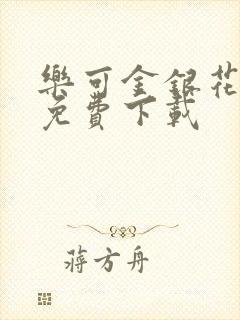 樂可金銀花
免費下載
蔣方舟